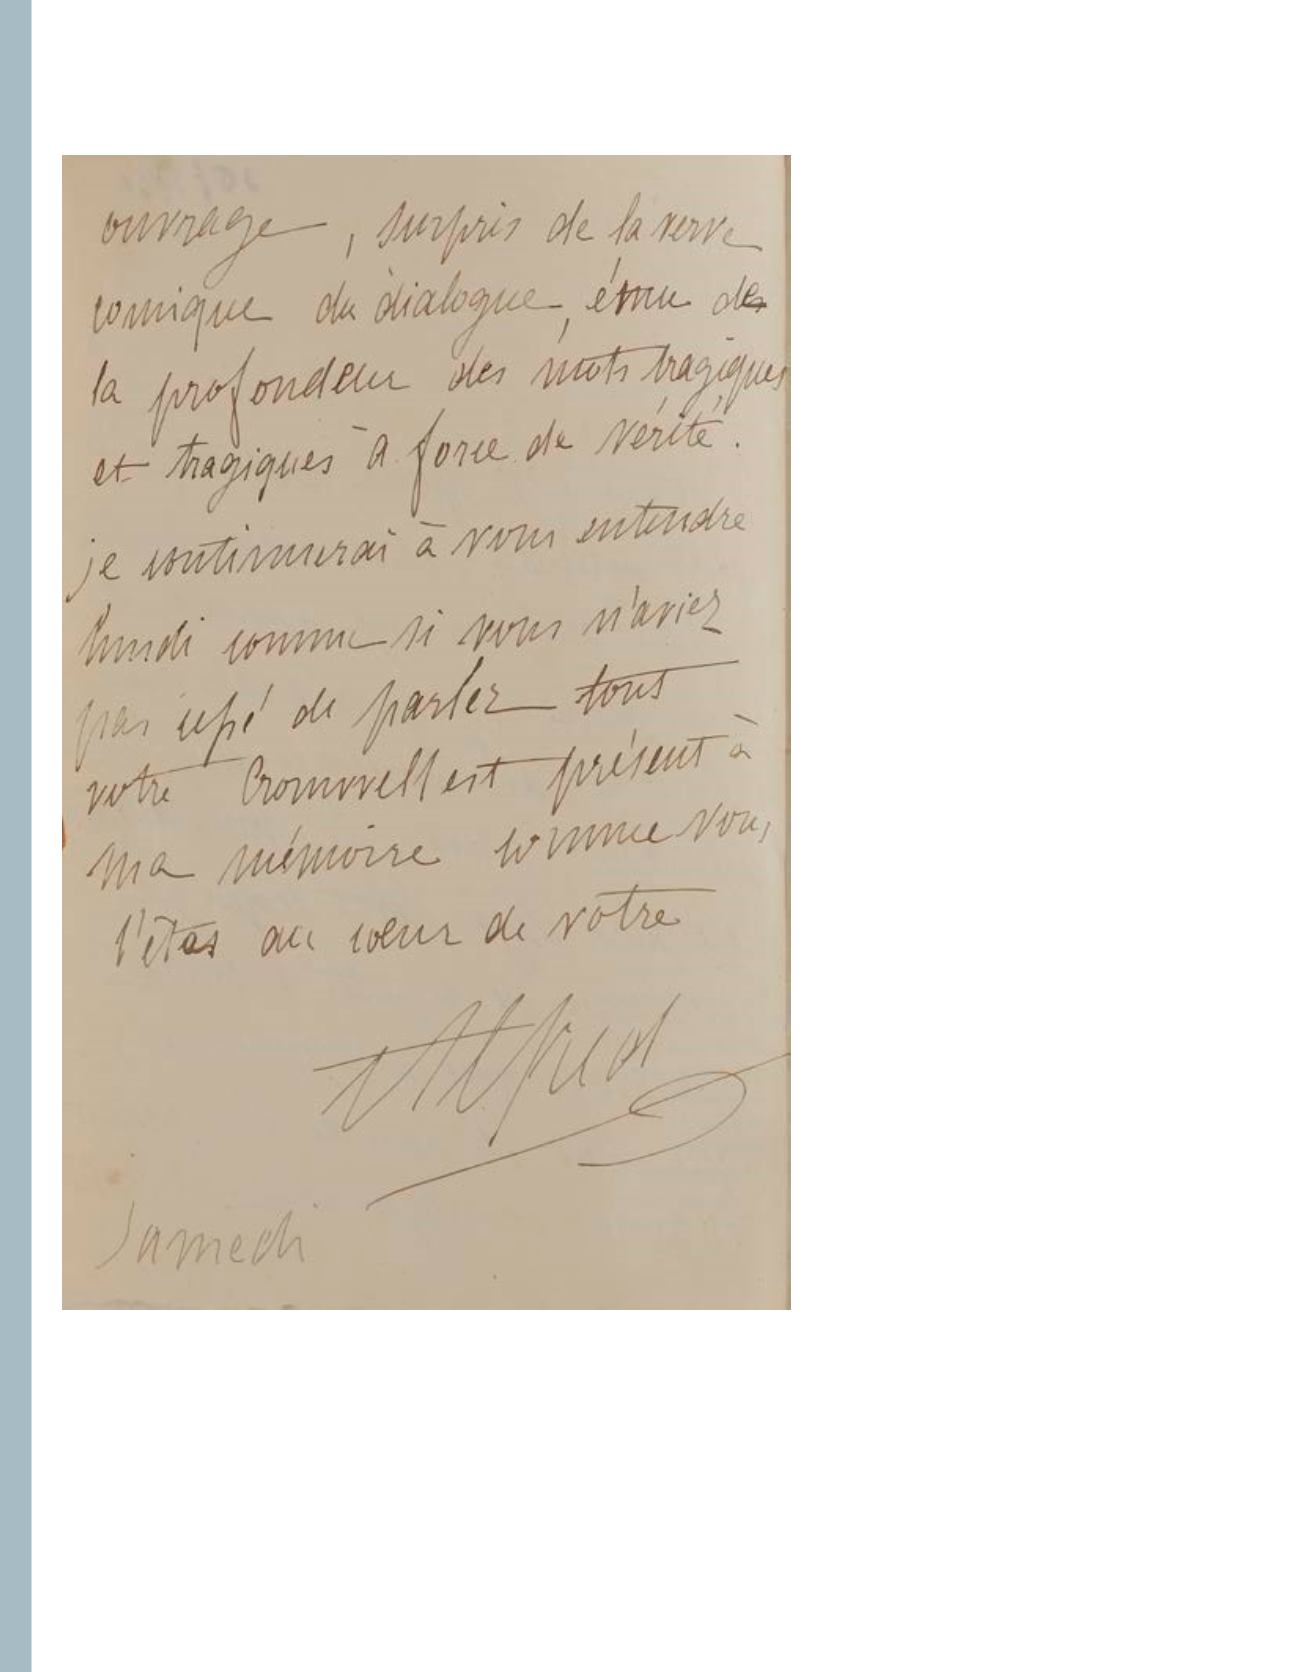 ouvrage, surpris de la verve
comique du dialogue, ému de
la profondeur des mots tragiques
et tragiques à force de vérité.
je continuerai à vous entendre
lundi comme si vous n'aviez
pas cessé de parler tout
votre Cromwell est présent à
ma mémoire comme vous
l'êtes au cœur de votre
Alfred
Samedi